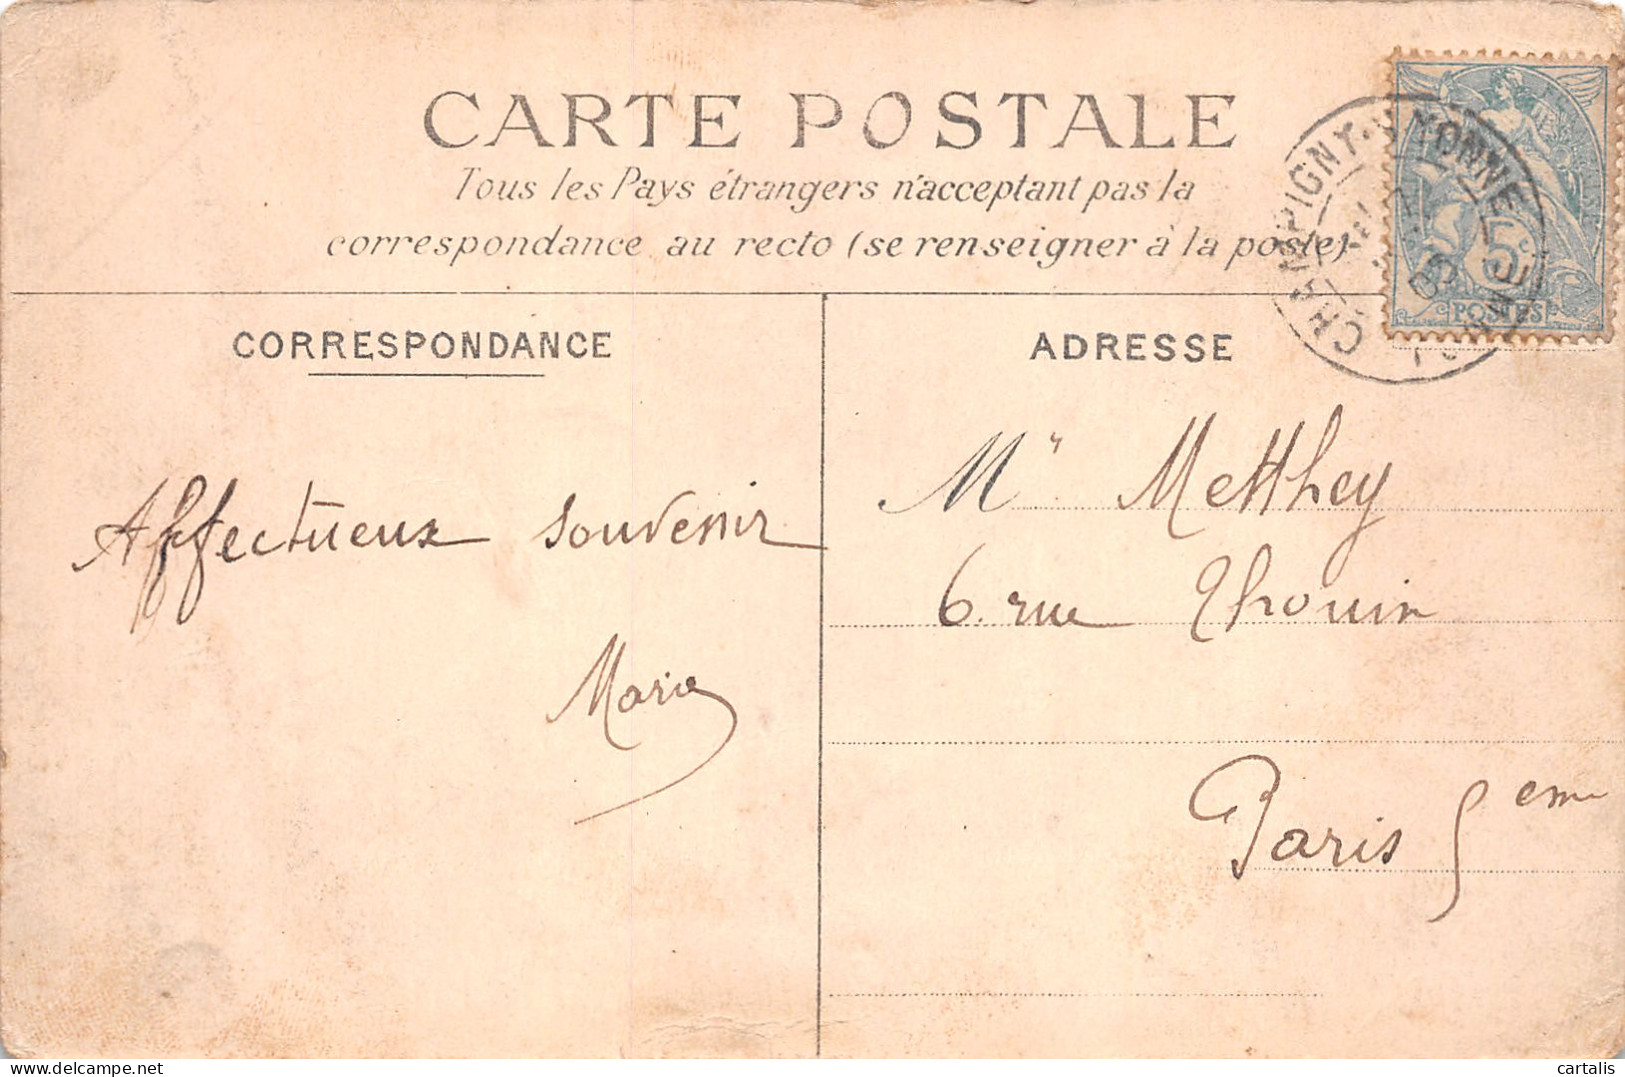 CARTE POSTALE
Tous les Pays étrangers n'acceptant pas la
correspondance au recto (se renseigner à la poste)
CHAMPIGNY-S-YONNE
5c
POSTES
CORRESPONDANCE
ADRESSE
Affectueux souvenir
Marie
Mr Metthey
6. rue Thouin
Paris 5eme
cartalis